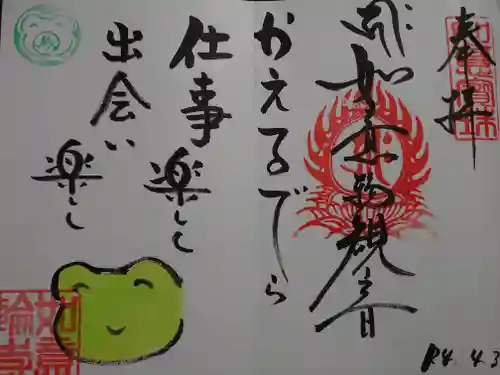 奉拝
如意輪観音
かえるでら
仕事楽して
出会い楽し
R4.4.3
如意輪寺